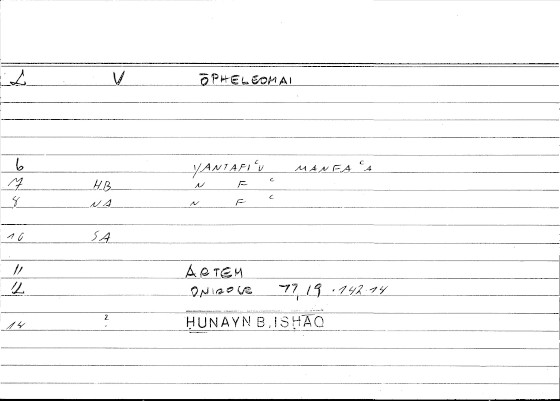 1 V ŌPHELEOMAI
6 YANTAFIʿU MANFAʿA
7 HB N F ʿ
8 NA N F ʿ
10 SA
11 ARTEM
12 ONIROCR 77,19 · 142.14
14 ? ḤUNAYN B. ISḤĀQ